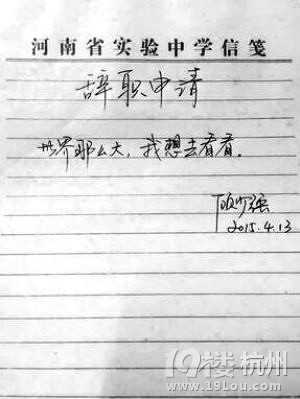 河南省实验中学信笺
辞职申请
世界那么大，我想去看看。
顾少强
2015.4.13
19楼杭州
www.19lou.com